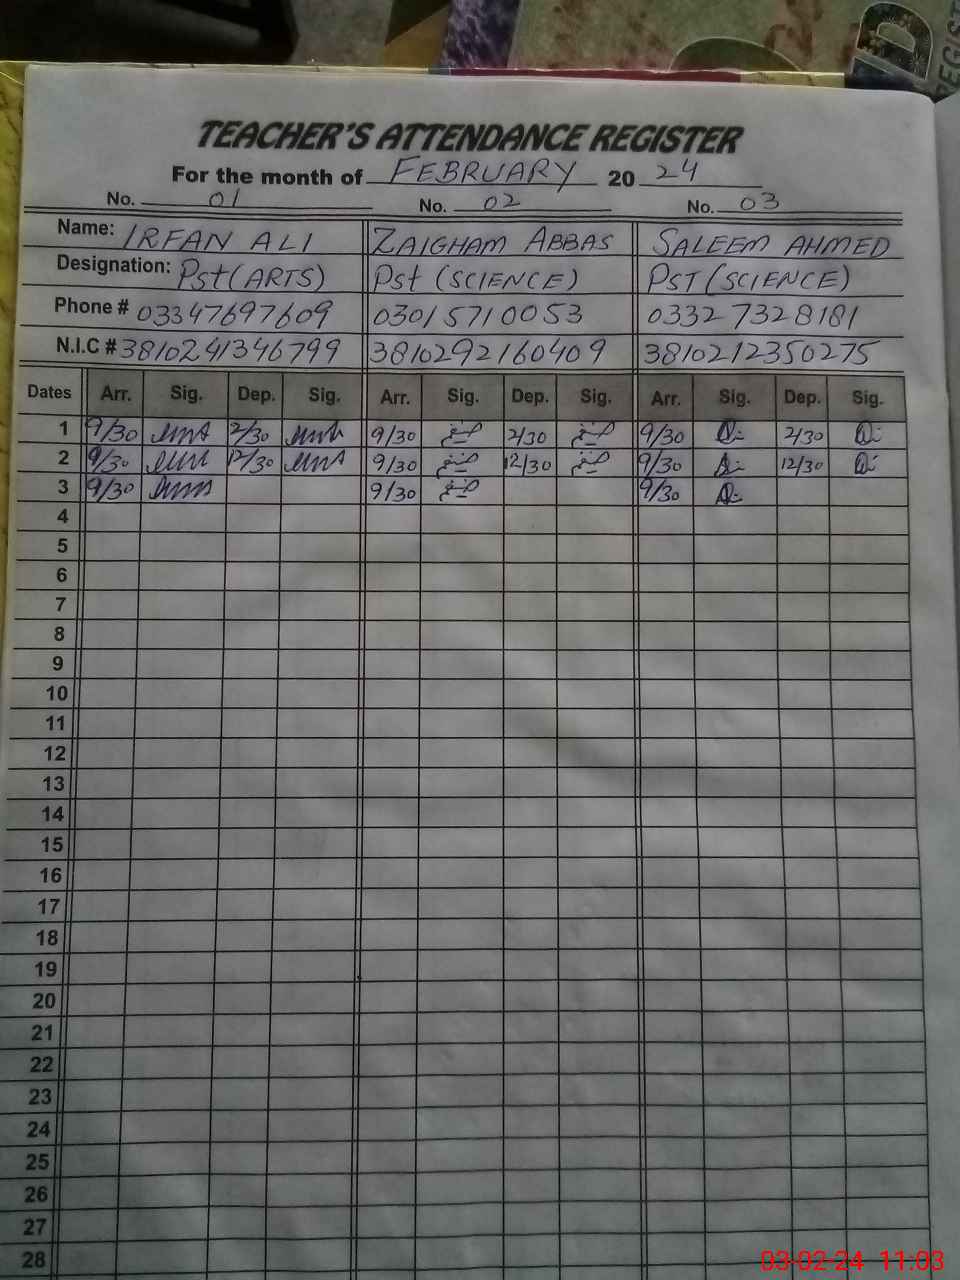 REGIST
TEACHER'S ATTENDANCE REGISTER
For the month of FEBRUARY 2024
No. 01 No. 02 No. 03
Name: IRFAN ALI ZAIGHAM ABBAS SALEEM AHMED
Designation: Pst (ARTS) Pst (SCIENCE) PST (SCIENCE)
Phone # 03347697609 03015710053 03327328181
N.I.C # 3810241346799 3810292160409 3810212350275
Dates Arr. Sig. Dep. Sig. Arr. Sig. Dep. Sig. Arr. Sig. Dep. Sig.
1 9/30 2/30 9/30 2/30 9/30 2/30
2 9/30 12/30 9/30 12/30 9/30 12/30
3 9/30 9/30 9/30
4
5
6
7
8
9
10
11
12
13
14
15
16
17
18
19
20
21
22
23
24
25
26
27
28
03-02-24 11:03